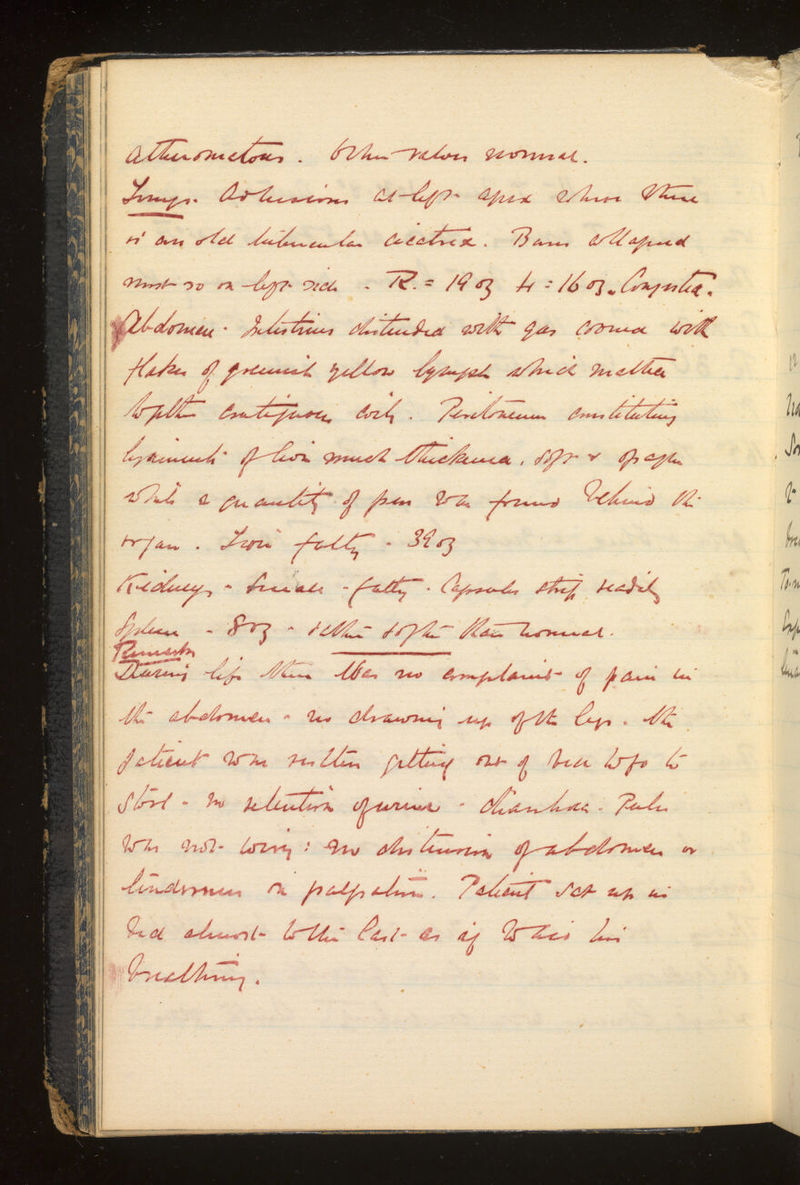 atheromatous. Other valves normal.
Lungs. Adhesions at left apex where there
is an old tubercular cicatrix. Bases collapsed
most so on left side - R. = 19 oz L = 16 oz. Congested.
Abdomen - Intestines distended with gas covered with
flakes of greenish yellow lymph which matted
together contiguous coils. Peritoneum constituting
ligaments of liver much thickened, soft & opaque
while a quantity of pus was found behind the
organ. Liver fatty - 39 oz
Kidneys - Small - fatty - Capsules strip readily
Spleen - 8 oz - rather softer than normal.
Remarks
During life there was no complaint of pain in
the abdomen - no drawing up of the legs. The
patient was restless getting out of bed to go to
stool - no retention of urine - diarrhoea. Pulse
was not wiry: no distension of abdomen or
tenderness on palpation. Patient sat up in
bed almost to the last as if to his
breathing.